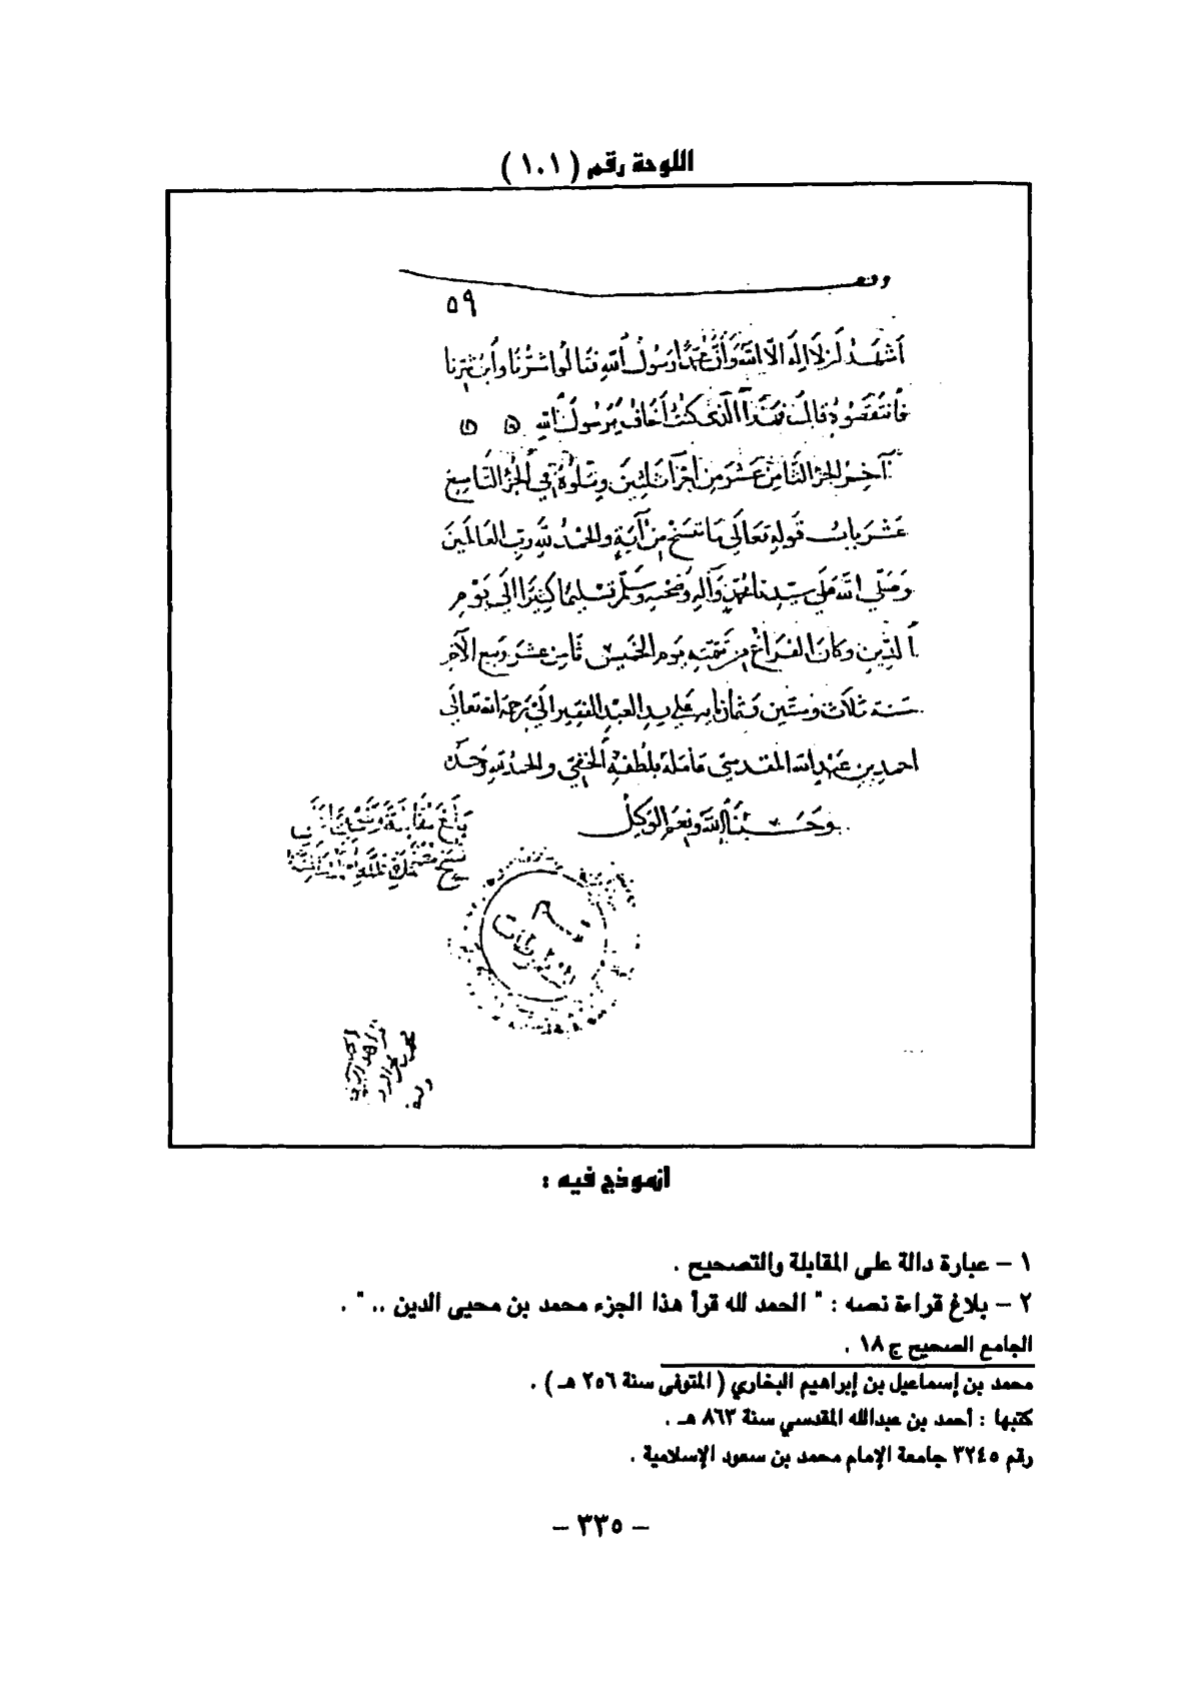 اللوحة رقم ( ١٠١ )
وقف
٥٩
أَشْهَدُ أَن لَا إِلَهَ إِلَّا اللَّهُ وَأَنَّ مُحَمَّدًا رَسُولُ اللَّهِ فَقَالُوا شَرُّنَا وَابْنُ شَرِّنَا
فَانْتَقَصُوهُ قَالَ فَهَذَا الَّذِي كُنْتُ أَخَافُ يَا رَسُولَ اللَّهِ
آخِرُ الجُزْءِ الثَّامِن عَشَرَ مِن أَجْزَاءِ ثَلَاثِينَ وَيَتْلُوهُ فِي الجُزْءِ التَّاسِعَ
عَشَرَ بَابُ قَولِهِ تَعَالَى مَا نَنسَخْ مِنْ آيَةٍ وَالحَمْدُ للَّهِ رَبِّ العَالَمِينَ
وَصَلَّى اللَّهُ عَلَى سَيِّدِنَا مُحَمَّدٍ وَآلِهِ وَصَحْبِهِ وَسَلَّمَ تَسْلِيمًا كَثِيرًا إِلَى يَوْمِ
الدِّينِ وَكَانَ الفَرَاغُ مِن تَتِمَّتِهِ يَوم الخَمِيس ثَامِن عَشَرَ رَبِيع الآخِر
سَنَة ثَلَاث وَسِتِّين وَثَمَانمايه عَلَى يَدِ العَبْدِ الفَقِيرِ إِلَى رَحْمَةِ اللَّه تَعَالَى
احمد بن عَبْدِ اللَّه المَقْدِسِي عَامَلَهُ بِلُطْفِهِ الخَفِي وَالحَمْدُ للَّهِ وَحْدَهُ
وَحَسْبُنَا اللَّهُ وَنِعْمَ الوَكِيلُ
بَلَغَ مُقَابَلَةً
انموذج فيه :
١ – عبارة دالة على المقابلة والتصحيح .
٢ – بلاغ قراءة نصه : " الحمد لله قرأ هذا الجزء محمد بن محيى الدين .. " .
الجامع الصحيح ج ١٨ .
محمد بن إسماعيل بن إبراهيم البخاري ( المتوفى سنة ٢٥٦ هـ ) .
كتبها : أحمد بن عبدالله المقدسي سنة ٨٦٣ هـ .
رقم ٣٢٤٥ جامعة الإمام محمد بن سعود الإسلامية .
– ٣٣٥ –